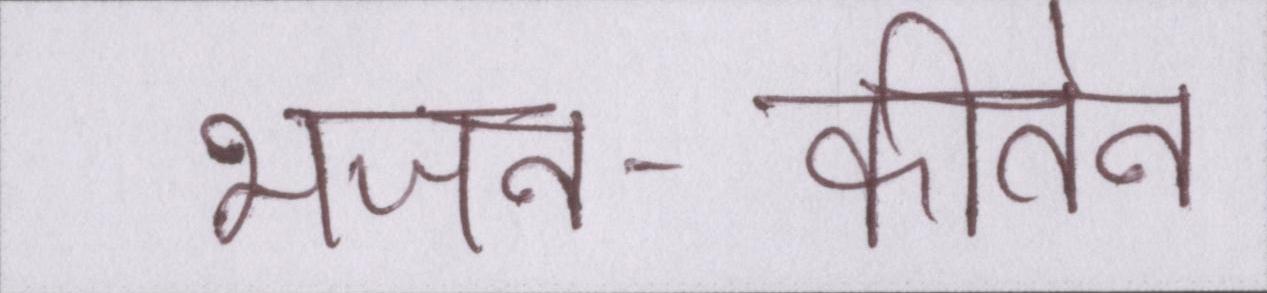 भजन - कीर्तन